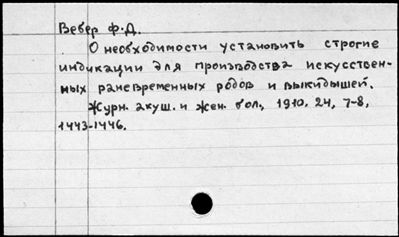 Вебер Ф.Д.
О необходимости установить строгие
индикации для производства искусствен-
ных раневременных родов и выкидышей.
Журн. акуш. и жен. бол., 1910, 24, 7-8,
1443-1446.